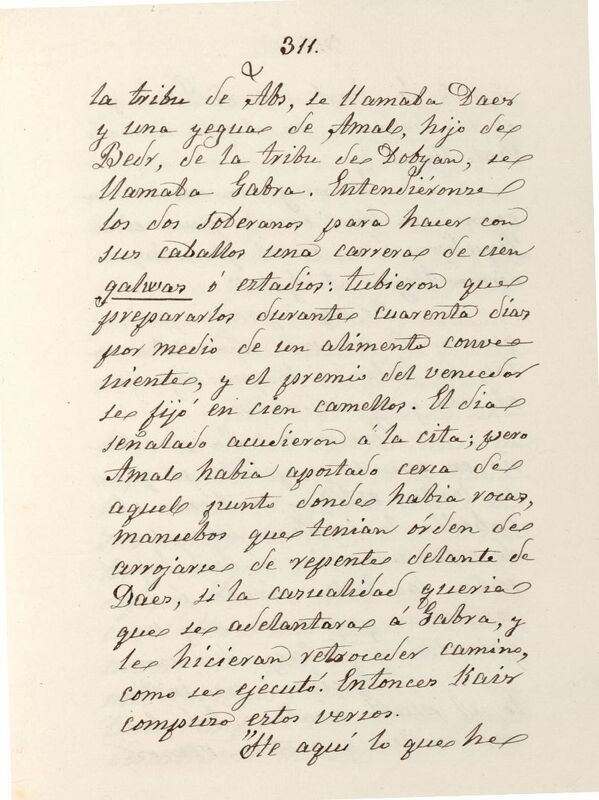 311.
la tribu de Abs, se llamaba Daes
y una yegua de Amal, hijo de
Bedr, de la tribu de Dobyan, se
llamaba Gabra. Entendiéronse
los dos soberanos para hacer con
sus caballos una carrera de cien
galwas ó estadios: tubieron que
prepararlos durante cuarenta dias
por medio de un alimento conve
niente, y el premio del vencedor
se fijó en cien camellos. El dia
señalado acudieron á la cita; pero
Amal habia apostado cerca de
aquel punto donde habia rocas,
mancebos que tenian órden de
arrojarse de repente delante de
Daes, si la casualidad queria
que se adelantara á Gabra, y
le hicieran retroceder camino,
como se ejecutó. Entonces Kais
compuso estos versos.
"He aquí lo que he